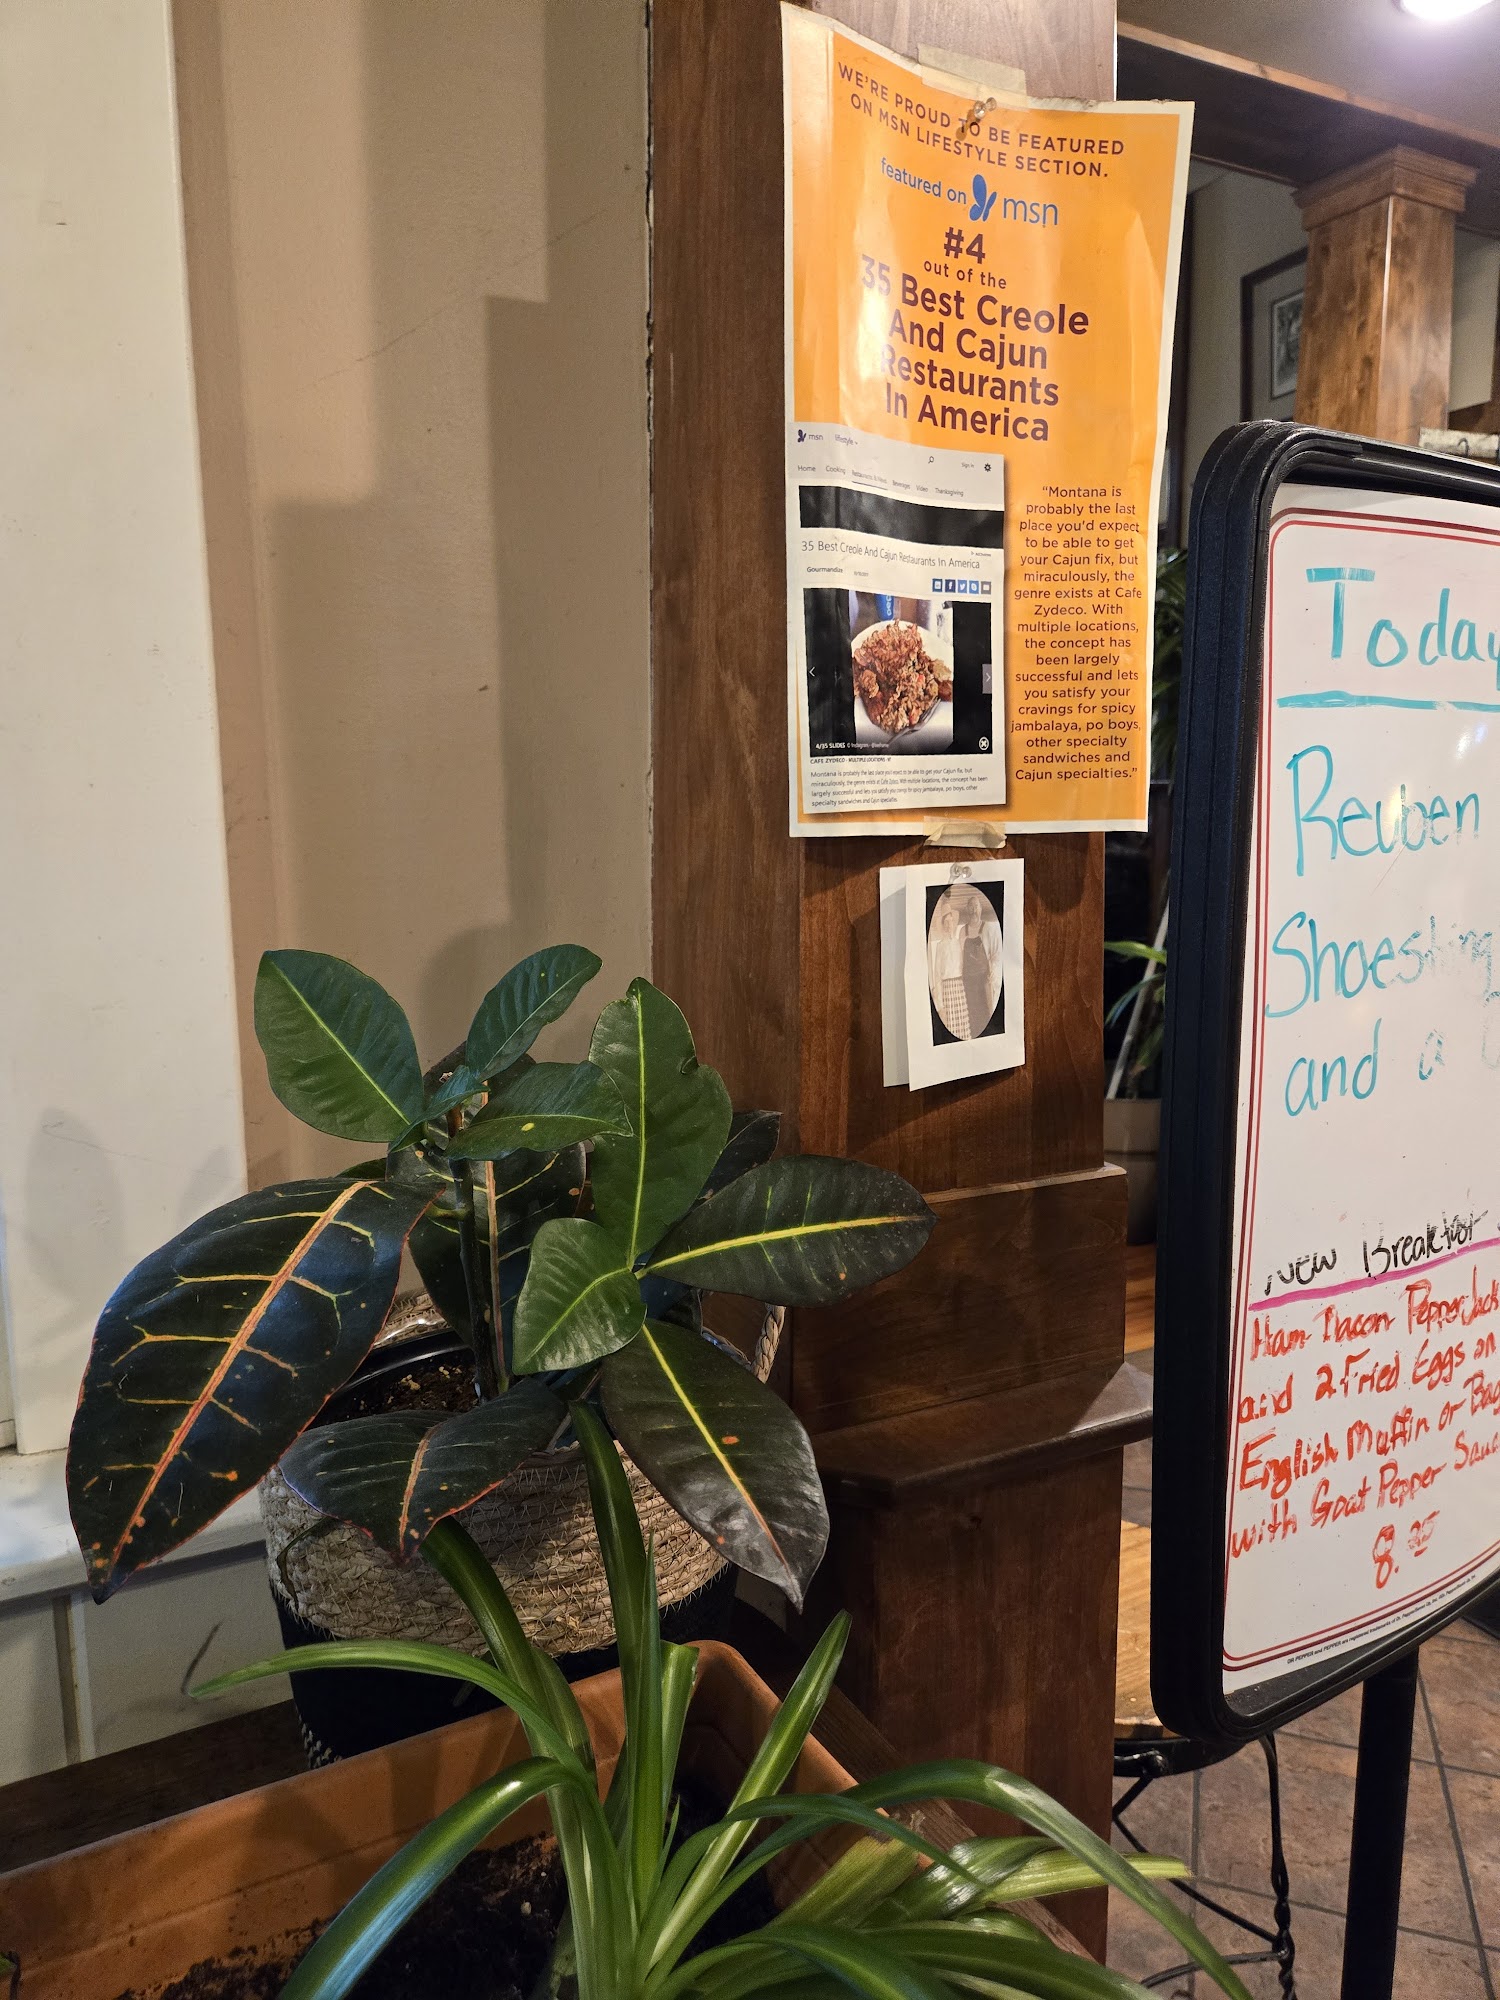 WE'RE PROUD TO BE FEATURED
ON MSN LIFESTYLE SECTION.
featured on msn
#4
out of the
35 Best Creole
And Cajun
Restaurants
In America
msn lifestyle
Sign in
Home Cooking Restaurants & News Beverages Video Thanksgiving
35 Best Creole And Cajun Restaurants In America
Gourmandize
4/35 SLIDES © Instagram
CAFE ZYDECO - MULTIPLE LOCATIONS
Montana is probably the last place you'd expect to be able to get your Cajun fix, but
miraculously, the genre exists at Cafe Zydeco. With multiple locations, the concept has been
largely successful and lets you satisfy your cravings for spicy jambalaya, po boys, other
specialty sandwiches and Cajun specialties.
"Montana is
probably the last
place you'd expect
to be able to get
your Cajun fix, but
miraculously, the
genre exists at Cafe
Zydeco. With
multiple locations,
the concept has
been largely
successful and lets
you satisfy your
cravings for spicy
jambalaya, po boys,
other specialty
sandwiches and
Cajun specialties."
Today
Reuben
Shoestring
and a
New Breakfast
Ham Bacon Pepper Jack
and 2 Fried Eggs on
English Muffin or Bag
with Goat Pepper Sauc
8.25
DR PEPPER and PEPPER are registered trademarks of Dr Pepper/Seven Up, Inc.